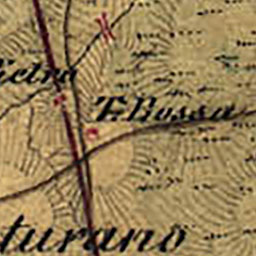 ietra
T. Rossa
turano